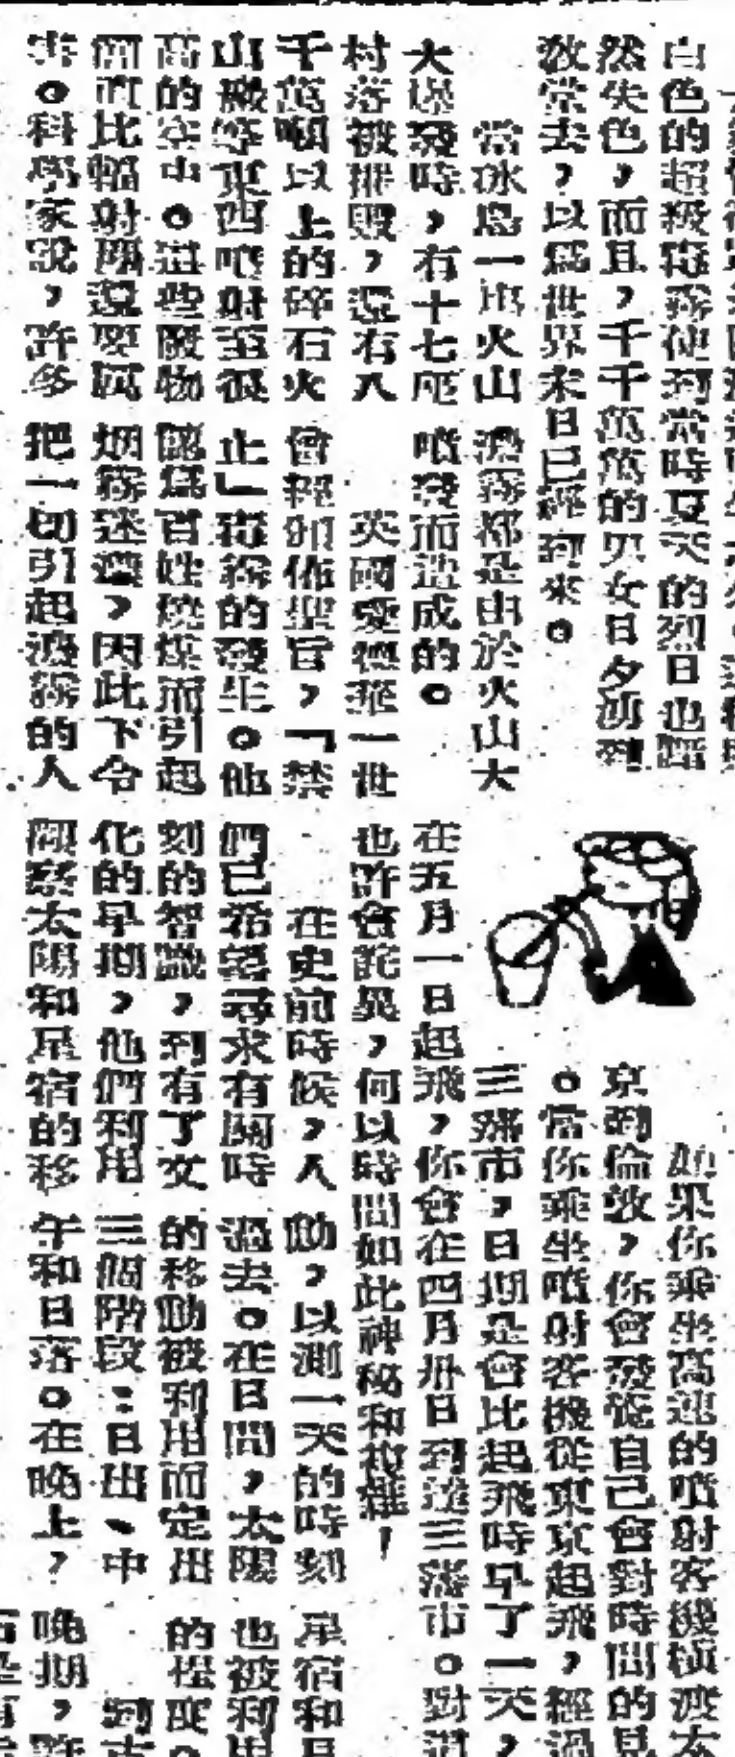 白色的超級毒霧使到當時夏天的烈日也黯
然失色，而且，千千萬萬的男女日夕湧到
教堂去，以爲世界末日已經到來。
當冰島一座火山
大爆發時，有十七座
村落被摧毀，還有八
千萬噸以上的碎石火
山礫等東西噴射至很
高的空中。這些廢物
簡直比輻射塵還要厲
害。科學家說，許多
濃霧都是由於火山大
噴發而造成的。
英國愛德華一世
曾經頒佈聖旨，「禁
止」毒霧的發生。他
認爲百姓燒煤而引起
烟霧迷濛，因此下令
把一切引起濃霧的人
如果你乘坐高速的噴射客機橫渡太
京到倫敦，你會發覺自己會對時間的
。當你乘坐噴射客機從東京起飛，經過
三藩市，日期是會比起飛時早了一天，
在五月一日起飛，你會在四月卅日到達三藩市。對這
也許會詫異，何以時間如此神秘和複雜！
在史前時候，人
們已希望尋求有關時
刻的智識，到有了文
化的早期，他們利用
觀察太陽和星宿的移
動，以測一天的時刻
過去。在日間，太陽
的移動被利用而定出
三個階段：日出、中
午和日落。在晚上，
星宿和月
也被利用
的程度。
到古
晚期，許